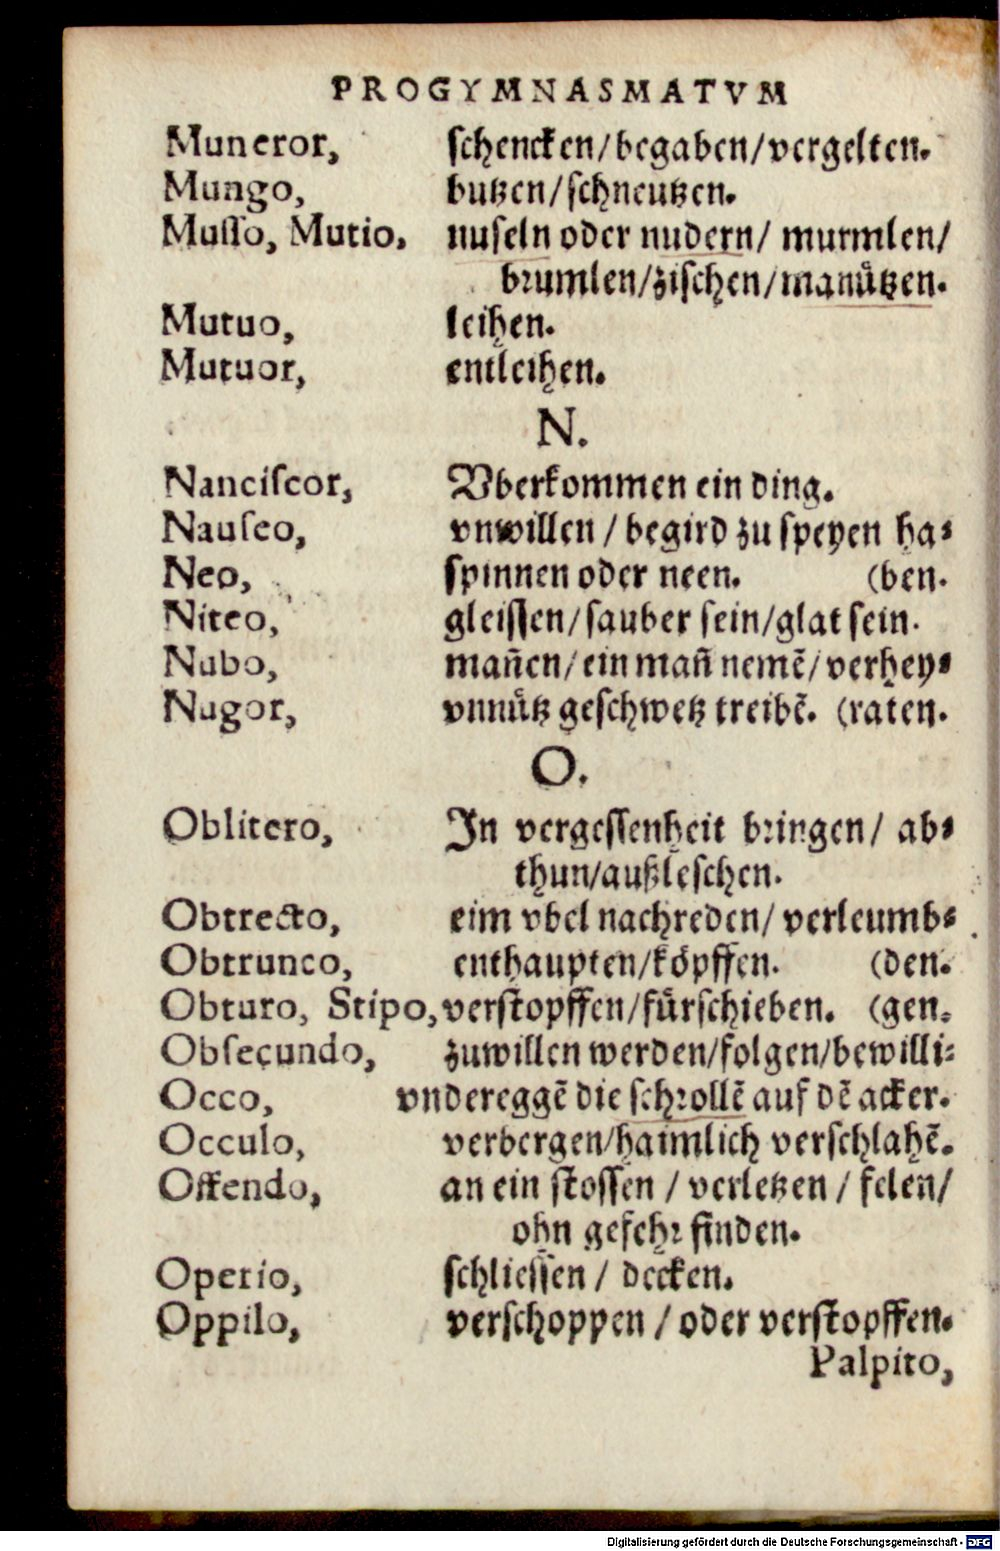 PROGYMNASMATVM
Muneror, schencken/begaben/vergelten.
Mungo, butzen/schneutzen.
Musso, Mutio. nuseln oder nudern/ murmlen/
brumlen/zischen/manuͤtzen.
Mutuo, leihen.
Mutuor, entleihen.
N.
Nanciscor, Vberkommen ein ding.
Nauseo, vnwillen / begird zu speyen ha⸗
Neo, spinnen oder neen. (ben.
Niteo, gleissen/sauber sein/glat sein.
Nubo, mañen/ein mañ nemẽ/verhey⸗
Nugor, vnnuͤtz geschwetz treibẽ. (raten.
O.
Oblitero, In vergessenheit bringen/ ab⸗
thun/außleschen.
Obtrecto, eim vbel nachreden/ verleumb⸗
Obtrunco, enthaupten/koͤpffen. (den.
Obturo, Stipo, verstopffen/fuͤrschieben. (gen.
Obsecundo, zuwillen werden/folgen/bewilli⸗
Occo, vndereggẽ die schrollẽ auf dẽ acker.
Occulo, verbergen/haimlich verschlahẽ.
Offendo, an ein stossen / verletzen / felen/
ohn gefehr finden.
Operio, schliessen / decken.
Oppilo, verschoppen / oder verstopffen.
Palpito,
Digitalisierung gefördert durch die Deutsche Forschungsgemeinschaft - DFG